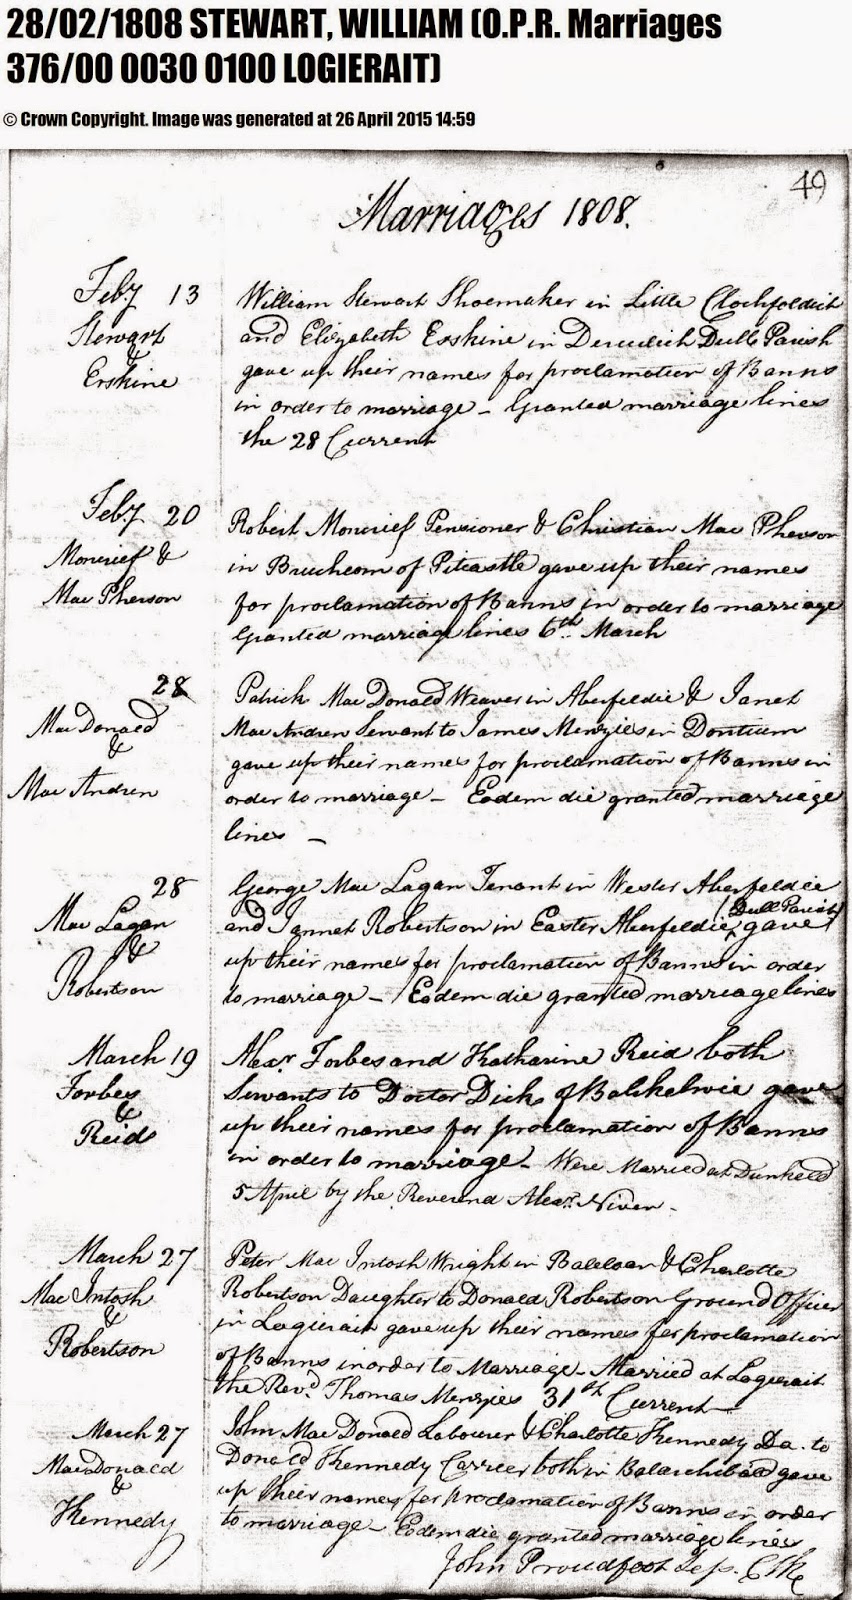 28/02/1808 STEWART, WILLIAM (O.P.R. Marriages
376/00 0030 0100 LOGIERAIT)
© Crown Copyright. Image was generated at 26 April 2015 14:59
49
Marriages 1808.
Feby 13
Stewart
&
Erskine
William Stewart Shoemaker in Little Clochfoldich
and Elizabeth Erskine in Derculich Dull Parish
gave up their names for proclamation of Banns
in order to marriage – Granted marriage lines
the 28 Current
Feby 20
Moncrief &
Mac Pherson
Robert Moncrief Pensioner & Christian Mac Pherson
in of Pitcastle gave up their names
for proclamation of Banns in order to marriage
Granted marriage lines 6th March
28
Mac Donald
&
Mac Andrew
Patrick Mac Donald Weaver in Aberfeldie & Janet
Mac Andrew Servant to James Menzies in
gave up their names for proclamation of Banns in
order to marriage – Eodem die granted marriage
lines –
28
Mac Lagan
&
Robertson
George Mac Lagan Tenant in Wester Aberfeldie
and Jannet Robertson in Easter Aberfeldie (Dull Parish) gave
up their names for proclamation of Banns in order
to marriage – Eodem die granted marriage lines
March 19
Forbes
&
Reids
Alexr Forbes and Katharine Reid both
Servants to Doctor Dick of gave
up their names for proclamation of Banns
in order to marriage – Were Married at Dunkeld
5 April by the Reverend Alexr Niven –
March 27
Mac Intosh
&
Robertson
Peter Mac Intosh Wright in Baleloan & Charlotte
Robertson Daughter to Donald Robertson Ground Officer
in Logierait gave up their names for proclamation
of Banns in order to Marriage – Married at Logierait
the Revd Thomas Menzies 31st Current –
March 27
Mac Donald
&
Kennedy
John Mac Donald Labourer & Charlotte Kennedy Da. to
Donald Kennedy Carrier both in Balarchibald gave
up their names for proclamation of Banns in order
to marriage – Eodem die granted marriage lines
John Proudfoot Sess. Clk